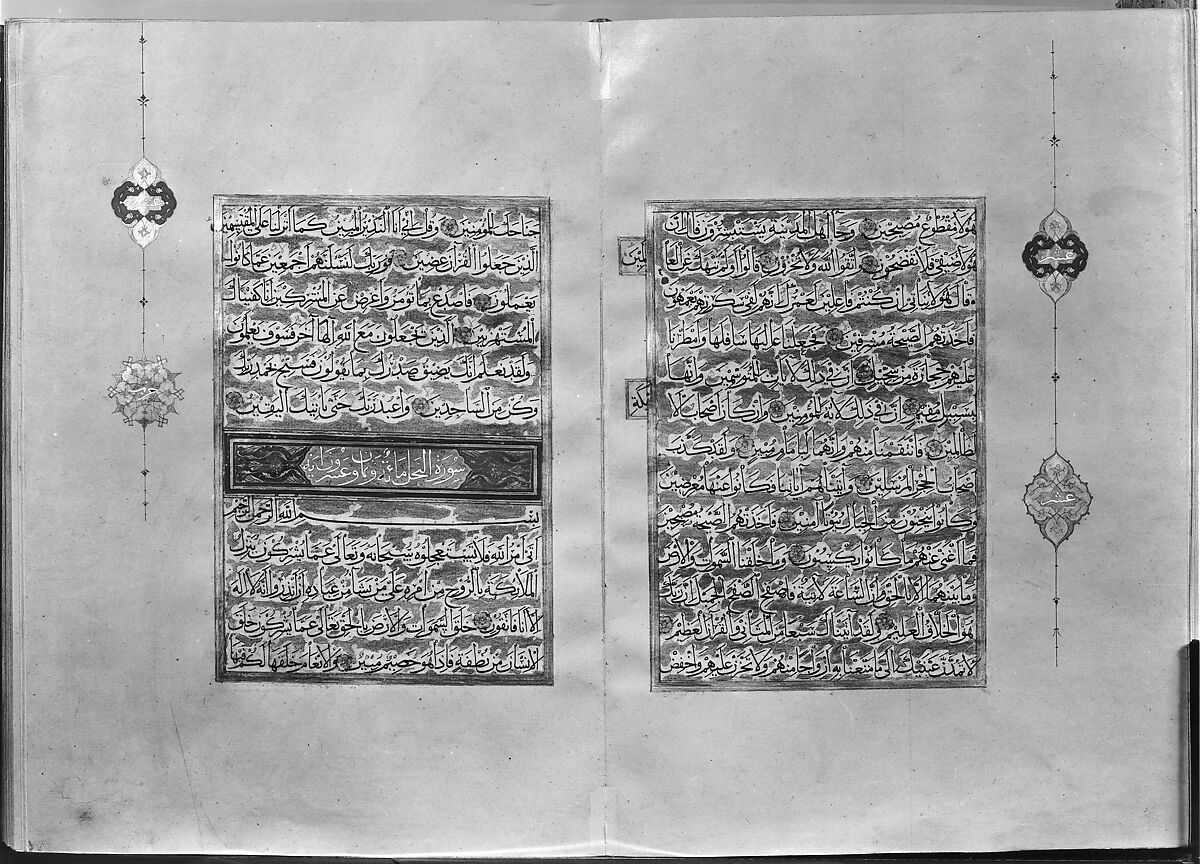 هؤلاء مقطوع مصبحين وجاء اهل المدينة يستبشرون قال ان
هؤلاء ضيفي فلا تفضحون واتقوا الله ولا تخزون قالوا اولم ننهك عن العا
لمين
قال هؤلاء بناتي ان كنتم فاعلين لعمرك انهم لفي سكرتهم يعمهون
فاخذتهم الصيحة مشرقين فجعلنا عاليها سافلها وامطرنا
عليهم حجارة من سجيل ان في ذلك لايات للمتوسمين وانها
لبسبيل مقيم ان في ذلك لاية للمؤمنين وان كان اصحاب الا
يكة
لظالمين فانتقمنا منهم وانهما لبامام مبين ولقد كذب
اصحاب الحجر المرسلين واتيناهم اياتنا فكانوا عنها معرضين
وكانوا ينحتون من الجبال بيوتا امنين فاخذتهم الصيحة مصبحين
فما اغنى عنهم ما كانوا يكسبون وما خلقنا السموات والارض
وما بينهما الا بالحق وان الساعة لاتية فاصفح الصفح الجميل ان ربك
هو الخلاق العليم ولقد اتيناك سبعا من المثاني والقران العظيم
لا تمدن عينيك الى ما متعنا به ازواجا منهم ولا تحزن عليهم واخفض
عشر
عشر
جناحك للمؤمنين وقل اني انا النذير المبين كما انزلنا على المقتسمين
الذين جعلوا القران عضين فوربك لنسألنهم اجمعين عما كانوا
يعملون فاصدع بما تؤمر واعرض عن المشركين انا كفيناك
المستهزئين الذين يجعلون مع الله الها اخر فسوف يعلمون
ولقد نعلم انك يضيق صدرك بما يقولون فسبح بحمد ربك
وكن من الساجدين واعبد ربك حتى يأتيك اليقين
سورة النحل مائة وثمان وعشرون اية
بسم الله الرحمن الرحيم
اتى امر الله فلا تستعجلوه سبحانه وتعالى عما يشركون ينزل
الملائكة بالروح من امره على من يشاء من عباده ان انذروا انه لا اله
الا انا فاتقون خلق السموات والارض بالحق تعالى عما يشركون خلق
الانسان من نطفة فاذا هو خصيم مبين والانعام خلقها لكم فيها
حزب